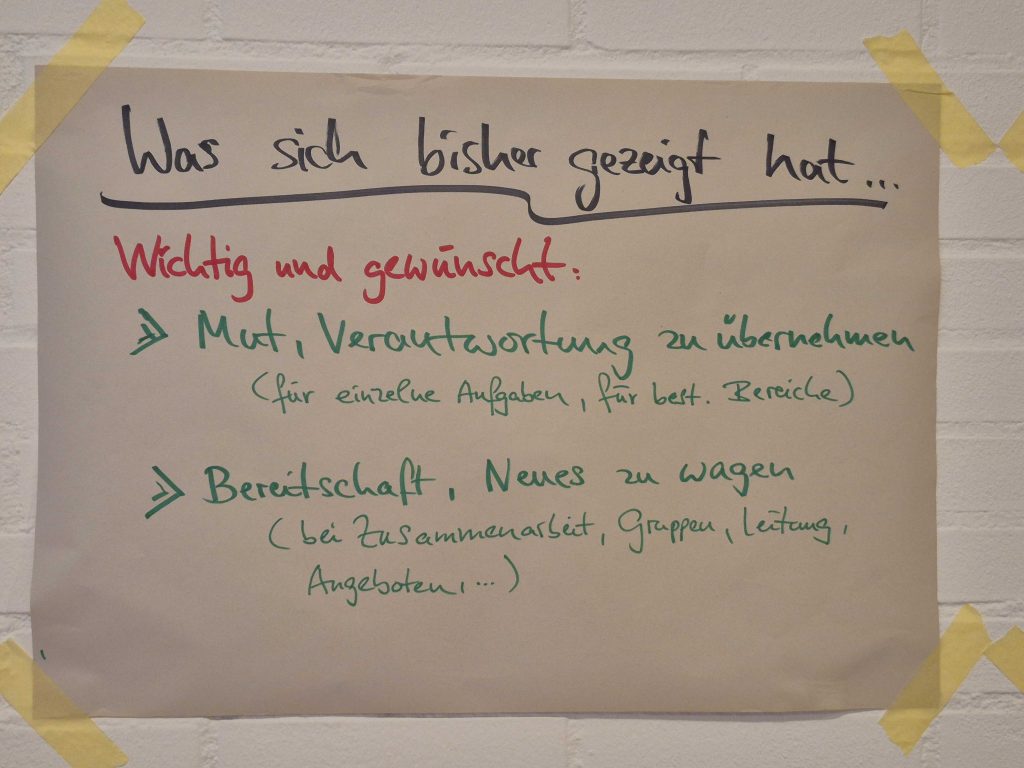 Was sich bisher gezeigt hat...
Wichtig und gewünscht:
» Mut, Verantwortung zu übernehmen
(für einzelne Aufgaben, für best. Bereiche)
» Bereitschaft, Neues zu wagen
(bei Zusammenarbeit, Gruppen, Leitung,
Angeboten, ...)